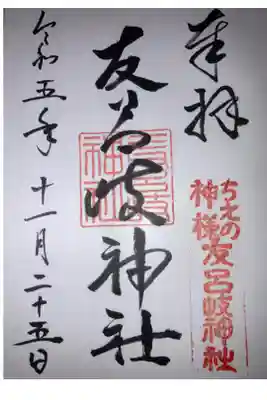 奉拝
ちえの
神様友呂岐神社
友呂岐神社
友呂岐
神社
令和五年十一月二十五日